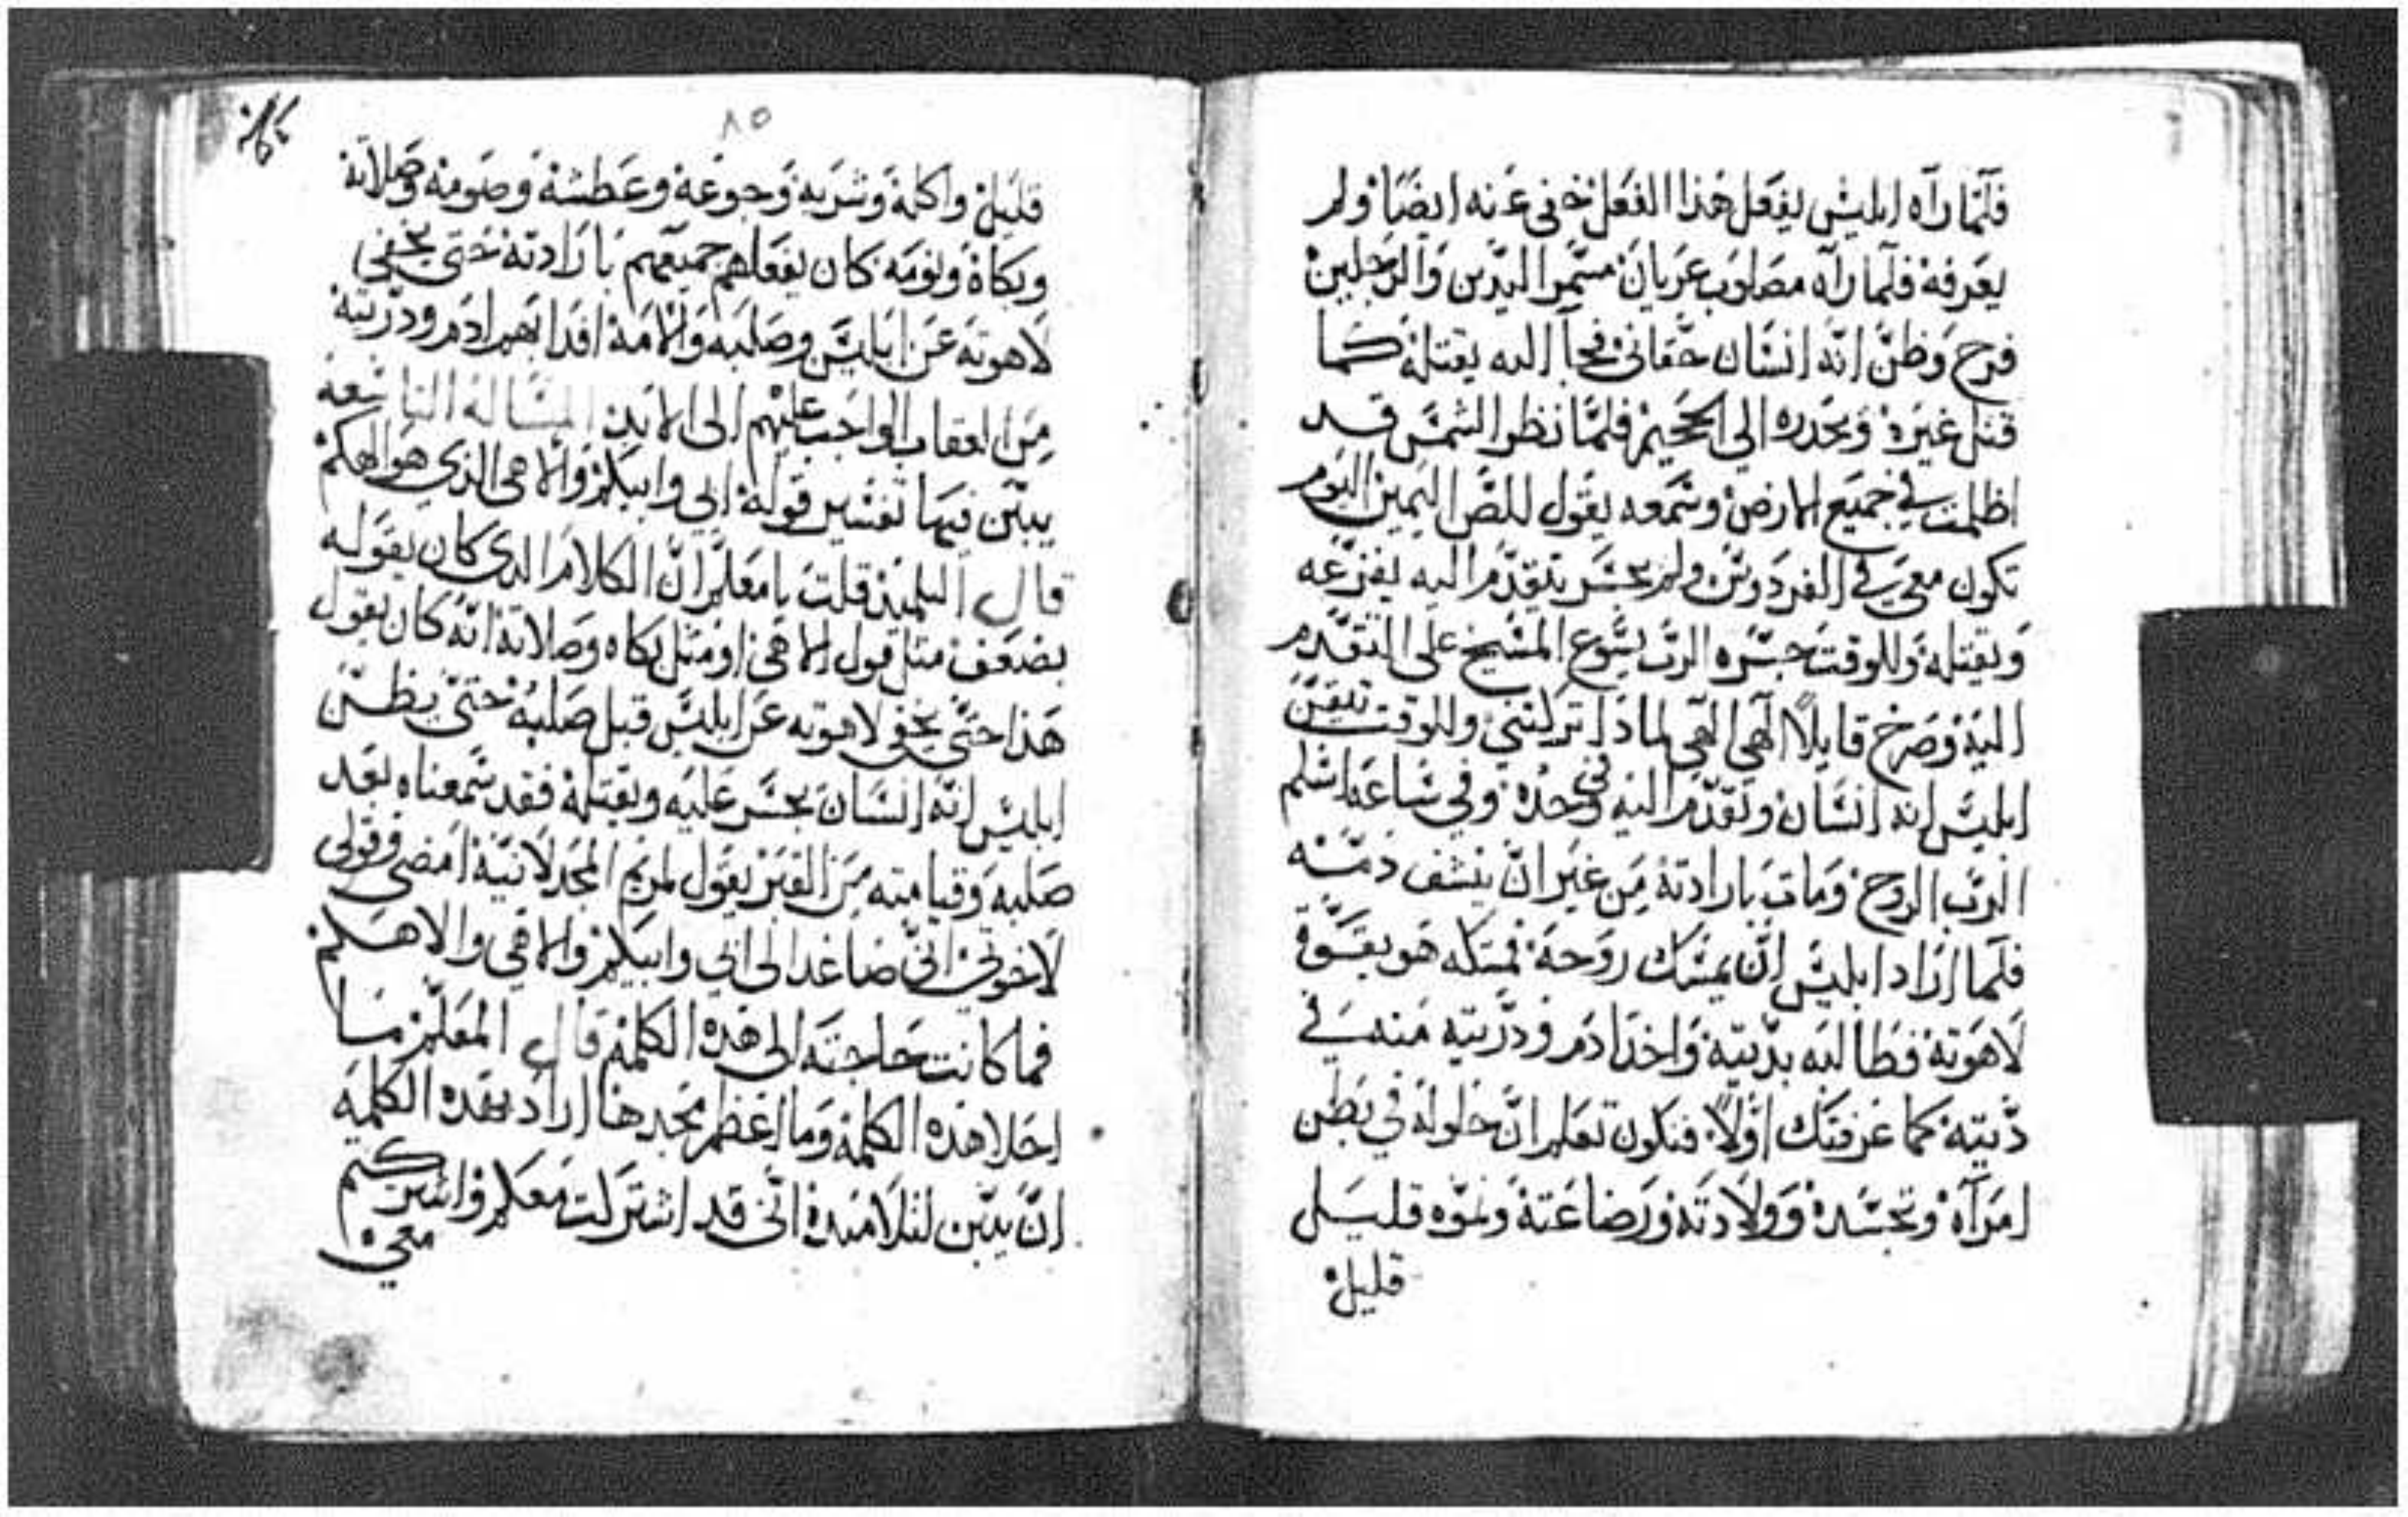 فلما راه ابليس يفعل هذا الفعل خفى عنه ايضا ولم
يعرفه فلما راه مصلوب عريان مسمر اليدين والرجلين
فرح وظن انه انسان حقانى فجا اليه يقتله كما
قتل غيره ويحدره الي الجحيم فلما نظر الشمس قد
اظلمت في جميع الارض وسمعه يقول للص اليمين اليوم
تكون معي في الفردوس ولم يجسر يتقدم اليه يفزعه
ويقتله وللوقت جسره الرب يسوع المسيح على التقدم
اليه وصرخ قايلا الهي الهي لماذا تركتني وللوقت تيقن
ابليس انه انسان وتقدم اليه وحده وفي ساعة اسلم
الرب الروح ومات بارادته من غير ان ينشف دمه
فلما اراد ابليس ان يمسك روحه فمسكه هو بقوة
لاهوته فطالبه بديته واخذ ادم وذريته منه في
ديته كما عرفتك اولا فتكون تعلم ان حلوله في بطن
امراه وتجسده وولادته ورضاعته ونموه قليل
قليل
٨٥
قليل واكله وشربه وجوعه وعطشه وصومه وصلاته
وبكاه ونومه كان يفعلهم جميعهم بارادته حتى يخفي
لاهوته عن ابليس وصلبه والامه افدا بهم ادم وذريته
من العقاب الواجب عليهم الى الابد المسالة التاسعه
يبين فيها تفسير قوله ابي وابيكم والاهى الذي هو الهكم
قال التلميذ قلت يا معلم ان الكلام الذي كان يقوله
بضعف مثل قول الاهى او مثل بكاه وصلاته انه كان يقول
هذا حتى يخفي لاهوته عن ابليس قبل صلبه حتى يظن
ابليس انه انسان يجسر عليه ويقتله فقد سمعناه بعد
صلبه وقيامته من القبر يقول لمريم المجدلانية امضى وقولى
لاخوتي اني صاعد الى ابي وابيكم والاهي والاهكم
فما كانت حاجته الى هذه الكلمة قال المعلم ما
احلا هذه الكلمة وما اعظم مجدها اراد بهذه الكلمه
ان يبين لتلاميذه انى قد اشتركت معكم واشركتكم
معي